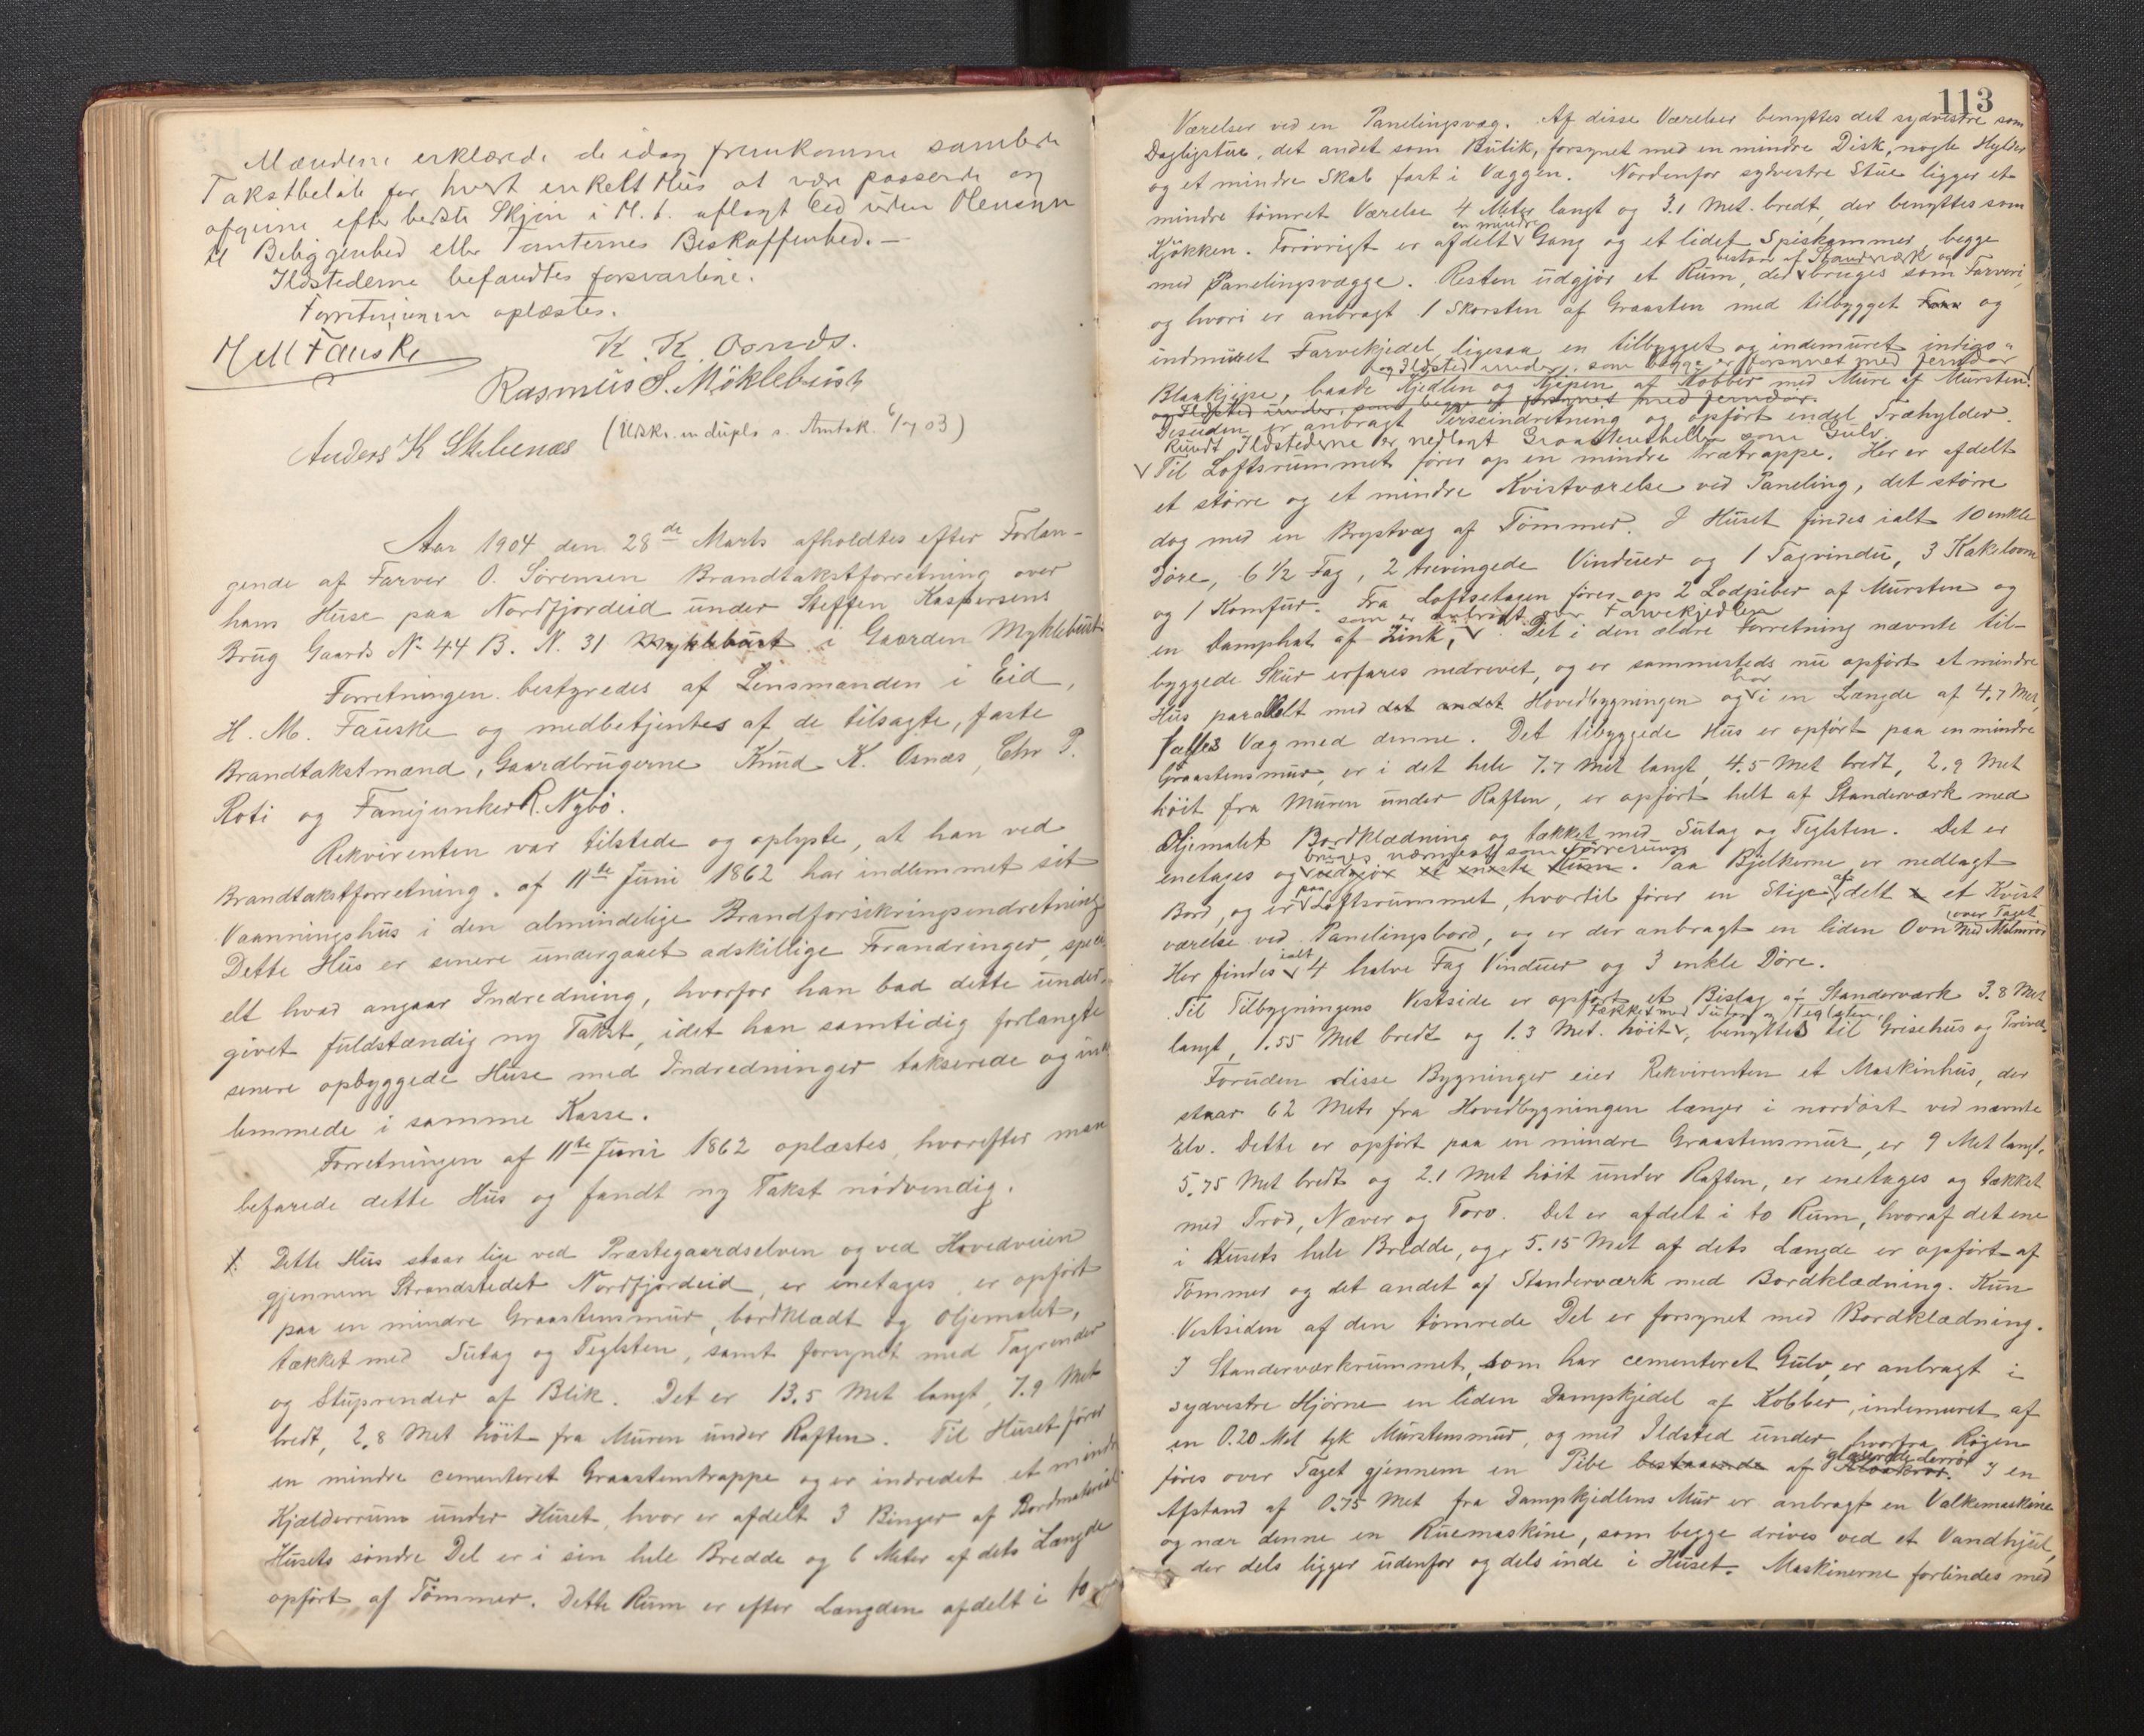 Mændene erklærede de idag fremkomne samlede
Takstbeløb for hvert enkelt Hus at være passende og
afgivne efter bedste Skjøn i H. t. aflagt Ed uden Hensyn
til Beliggenhed eller Tomternes Beskaffenhed. —
Ildstederne befandtes forsvarlige.
Forretningen oplæstes.
H M Fauske
K. K. Osnæs.
Rasmus S. Möklebust
Anders K
(Udskr. in duplo s. Amtsk. 6/7 03)
Aar 1904 den 28de Marts afholdtes efter Forlan-
gende af Farver O. Sørensen Brandtakstforretning over
hans Huse paa Nordfjordeid under Steffen Kaspersens
Brug Gaards No 44 B. N. 31 Myklebust i Gaarden Myklebust
Forretningen bestyredes af Lensmanden i Eid,
H. M. Fauske og medbetjentes af de tilsagte, faste
Brandtakstmænd, Gaardbrugerne Knud K. Osnæs, Chr P.
Roti og Fanejunker R. Nybö.
Rekvirenten var tilstede og oplyste, at han ved
Brandtakstforretning af 11te Juni 1862 har indlemmet sit
Vaaningshus i den almindelige Brandforsikringsindretning
Dette Hus er senere undergaaet adskillige Forandringer, speci-
elt hvad angaar Indredning, hvorfor han bad dette under-
givet fuldstændig ny Takst, idet han samtidig forlangte
senere opbyggede Huse med Indredninger takserede og ind
lemmede i samme Kasse.
Forretningen af 11te Juni 1862 oplæstes, hvorefter man
befarede dette Hus og fandt ny Takst nødvendig.
1. Dette Hus staar lige ved Præstegaardselven og ved Hovedveien
gjennem Strandstedet Nordfjordeid, er enetages, er opført
paa en mindre Graastensmur, bordklædt og Oljemalet,
tækket med Sutag og Teglsten, samt forsynet med Tagrender
og Stuprender af Blik. Det er 13.5 Met langt, 7.9 Met
bredt, 2.8 Met høit fra Muren under Raften. Til Huset fører
en mindre cementeret Graastenstrappe og er indredet et mindre
Kjælderrum under Huset, hvor er afdelt 3 Binger af Bordmateriale
Husets søndre Del er i sin hele Bredde og 6 Meter af dets Længde
opført af Tømmer. Dette Rum er efter Længden afdelt i to
113
Værelser ved en Panelingsvæg. Af disse Værelser benyttes det sydvestre som
Dagligstue, det andet som Butik, forsynet med en mindre Disk, nogle Hylder
og et mindre Skab fast i Væggen. Nordenfor sydvestre Stue ligger et
mindre tømret Værelse 4 Meter langt og 3.1 Met. bredt, der benyttes som
en mindre
Kjøkken. Forøvrigt er afdelt Gang og et lidet Spiskammer, begge
bestaar af Standerværk og
med Panelingsvægge. Resten udgjør et Rum, der bruges som Farveri,
og hvori er anbragt 1 Skorsten af Graasten med tilbygget og
indmuret Farvekjedel, ligesaa en tilbygget og indemuret indigo-
og Ildsted under, som begge er forsynet med Jerndør
Blaakjype, baade Kjedlen og Kjypen af Kobber med Mure af Mursten.
og Ildsted under, som begge er forsynet med Jerndør.
Desuden er anbragt Perseindretning og opført endel Træhylder.
Rundt Ildstederne er nedlagt Graastenshelle som Gulv.
Til Loftsrummet fører op en mindre Trætrappe. Her er afdelt
et større og et mindre Kvistværelse ved Paneling, det større
dog med en Brystvæg af Tømmer. I Huset findes ialt 10 enkle
Døre, 6 1/2 Fag, 2 trevingede Vinduer og 1 Tagvindu, 3 Kakelovne
og 1 Komfur. Fra Loftsetagen fører op 2 Lodpiber af Mursten og
som er anbragt over Farvekjedlen
en Damphat af Zink. Det i den ældre Forretning nævnte til-
byggede Skur erfares nedrevet, og er sammesteds nu opført et mindre
har
Hus parallelt med det andet Hovedbygningen og i en Længde af 4.7 Met,
fælles Væg med denne. Det tilbyggede Hus er opført paa en mindre
Graastensmur, er i det hele 7.7 Met langt, 4.5 Met bredt, 2.9 Met
høit fra Muren under Raften, er opført helt af Standerværk med
Oljemalet Bordklædning og tækket med Sutag og Teglsten. Det er
bruges nærmest som Tørrerum
enetages og udgjør et eneste Rum. Paa Bjelkerne er nedlagt
paa af
Bord, og er Loftsrummet, hvortil fører en Stige, delt et Kvist
over Taget
værelse ved Panelingsbord, og er der anbragt en liden Ovn med
ialt
Her findes 4 halve Fag Vinduer og 3 enkle Døre.
Til Tilbygningens Vestside er opført et Bislag af Standerværk 3.8 Met
tækket med Sutag og Teglsten,
langt, 1.55 Met bredt og 1.3 Met. høit, benyttes til Grisehus og Privet.
Foruden disse Bygninger eier Rekvirenten et Maskinhus, der
staar 62 Mets fra Hovedbygningen længer i nordøst ved nævnte
Elv. Dette er opført paa en mindre Graastensmur, er 9 Met langt,
5.75 Met bredt og 2.1 Met høit under Raften, er enetages og tækket
med Trod, Næver og Torv. Det er afdelt i to Rum, hvoraf det ene
i Husets hele Bredde, og 5.15 Met af dets Længde er opført af
Tømmer og det andet af Standerværk med Bordklædning. Kun
Vestsiden af den tømrede Del er forsynet med Bordklædning.
I Standerværkrummet, som har cementeret Gulv, er anbragt i
sydvestre Hjørne en liden Dampkjedel af Kobber, indemuret af
en 0.20 Met tyk Murstensmur, og med Ildsted under, hvorfra Røgen
glaserede lerrør
føres over Taget gjennem en Pibe bestaaende af Kloakrør. I en
Afstand af 0.75 Met fra Dampkjedlens Mur er anbragt en Valkemaskine
og nær denne en Ruemaskine, som begge drives ved et Vandhjul,
der dels ligger udenfor og dels inde i Huset. Maskinerne forbindes med